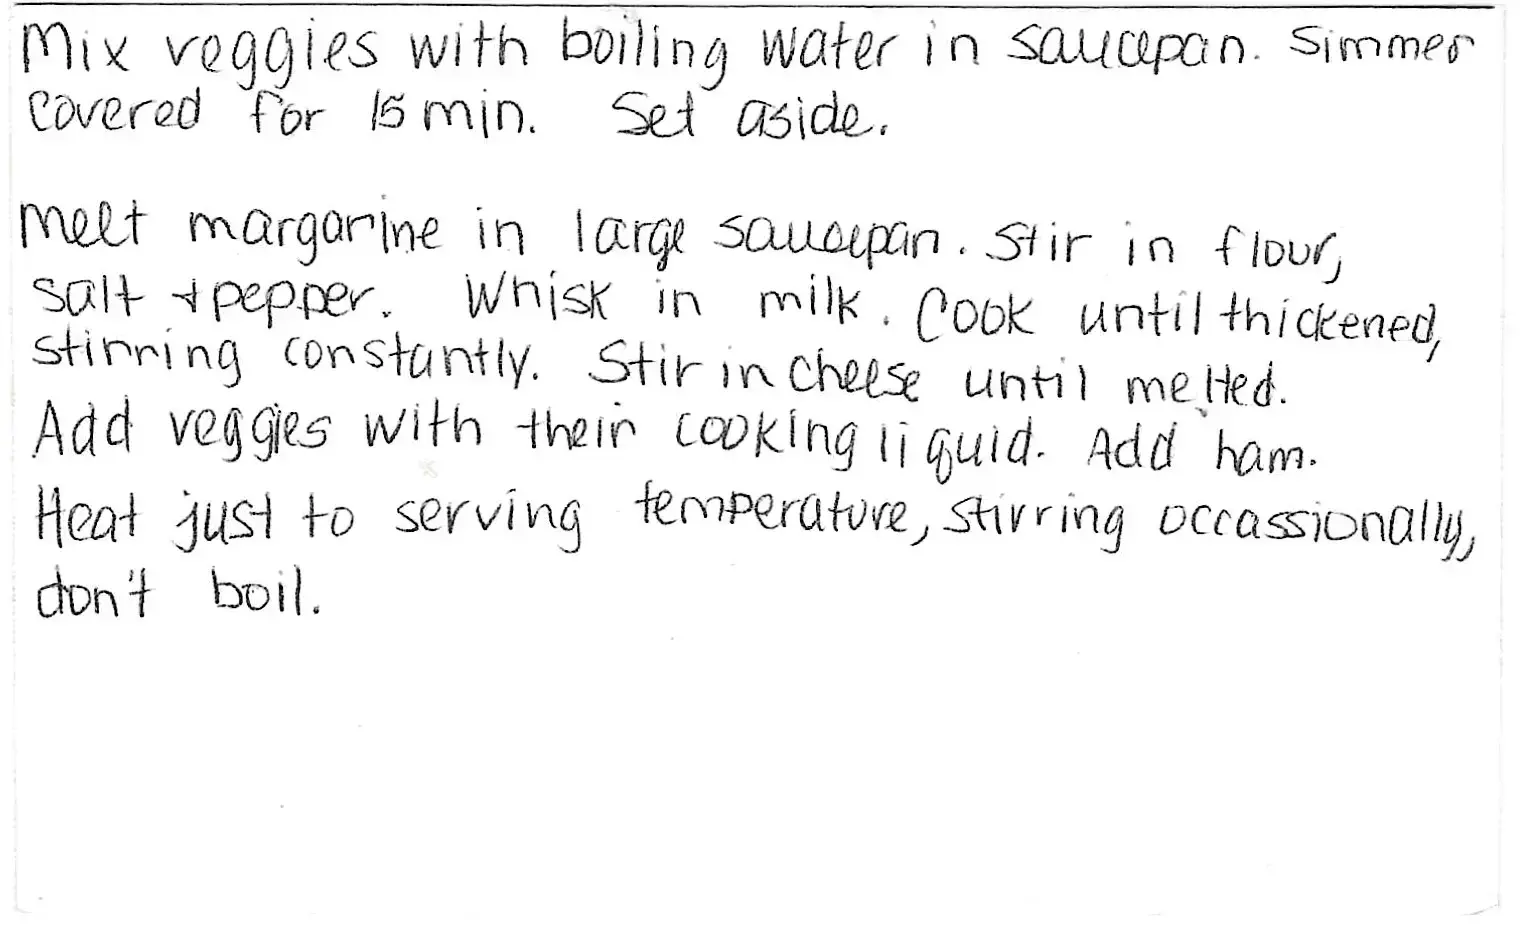 Mix veggies with boiling water in saucepan. Simmer
covered for 15 min. Set aside.
Melt margarine in large saucepan. Stir in flour,
salt + pepper. Whisk in milk. Cook until thickened,
stirring constantly. Stir in cheese until melted.
Add veggies with their cooking liquid. Add ham.
Heat just to serving temperature, stirring occassionally,
don't boil.